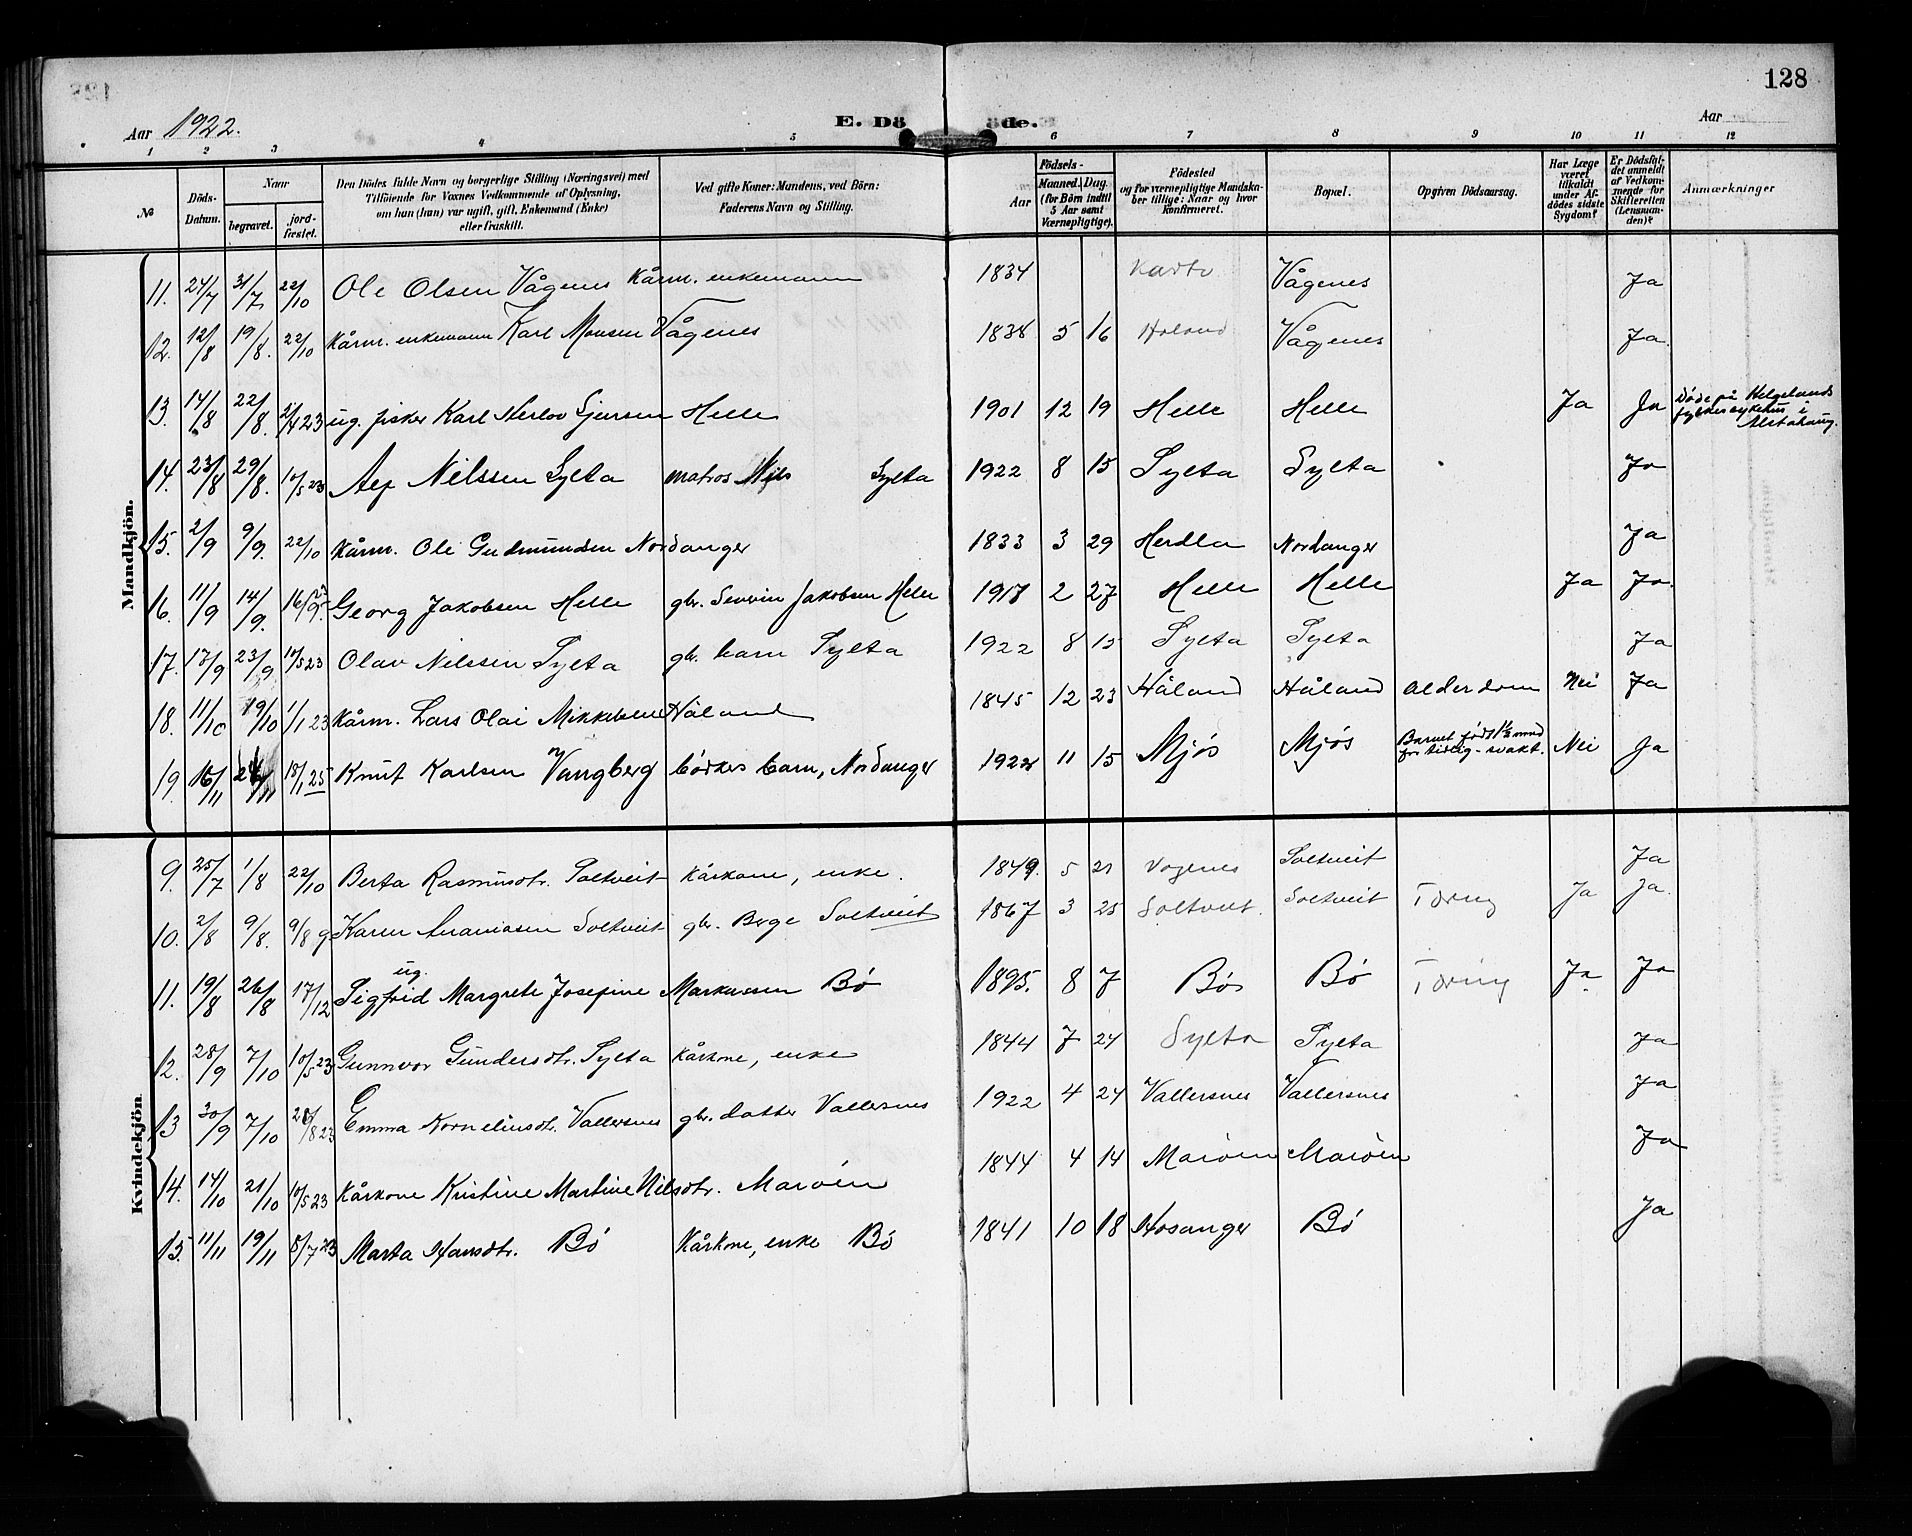 128
Aar 1922.
E. Döde.
Aar
1 2 3 4 5 6 7 8 9 10 11 12
№
Döds-Datum.
Naar
begravet.
jord-fæstet.
Den Dödes fulde Navn og borgerlige Stilling (Næringsvei) med
Tilföiende for Voxnes Vedkommende af Oplysning,
om han (hun) var ugift, gift, Enkemand (Enke)
eller fraskilt.
Ved gifte Koner: Mandens, ved Börn:
Faderens Navn og Stilling.
Födsels-
Aar
Maaned. Dag.
(for Börn indtil
5 Aar samt
Værnepligtige).
Födested
og for værnepligtige Mandska-
ber tillige: Naar og hvor
Konfirmeret.
Bopæl.
Opgiven Dödsaarsag.
Har Læge
været
tilkaldt
under Af-
dödes sidste
Sygdom?
Er Dödsfal-
det anmeldt
af Vedkom-
mende for
Skifteretten
(Lensman-
den)?
Anmærkninger
Mandkjön.
11. 24/7 31/7 22/10 Ole Olsen Vågenes Kårm. enkemann 1834 Vågenes Ja
12. 12/8 19/8. 22/10 Kårm. enkemann Karl Monsen Vågenes 1838 5 16 Vågenes Ja
13. 14/8 22/8. 23 ug. fisker Karl Helle 1901 12 19 Helle Helle Ja Ja Döde på Helgelands
fylkessykehus i
Alstahaug.
14. 23/8 29/8. 10/5 23 Nilssen Sylta matros Nils Sylta 1922 8 15 Sylta Sylta Ja
15. 2/9 9/9. 22/10 Kårm. Ole Gudmundsen Nordanger 1833 3 29 Herdla Nordanger Ja
16. 11/9 14/9. Georg Jakobsen Helle gbr. Severin Jakobsen Helle 1917 2 27 Helle Helle Ja Ja
17. 17/9 23/9. 10/5 23 Olav Nilssen Sylta gbr. barn Sylta 1922 8 15 Sylta Sylta Ja
18. 11/10 19/10 1/1 23 Kårm. Lars Olai Mikkelsen Håland 1845 12 23 Håland Håland Alderdom Nei Ja
19. 16/11 18/1 25 Knut Karlsen Vangberg bødkers barn, Nordanger 1922 11 15 Mjøs Mjøs Barnet født 1½ mnd
for tidlig - svakt. Nei Ja
Kvindekjön.
9. 25/7 1/8 22/10 Berta Rasmusdtr. Soltveit Kårkone, enke. 1849. 5 21 Vagenes Soltveit Ja
10. 2/8 9/8. 9/8 Karen Ananiasen Soltveit gbr. Berge Soltveit 1867 3 25 Soltveit. Soltveit Tæring Ja Ja.
11. 19/8 26/8 17/12 ug. Sigfrid Margrete Josefine Markussen Bö 1895. 8 7 Bö Bö Tæring Ja Ja
12. 28/9 7/10 10/5 23 Gunnvor Gundersdtr. Sylta Kårkone, enke 1844 7 24 Sylta Sylta Ja
13 30/9 7/10 23 Emma Korneliusdtr. Vallersnes gbr. datter Vallersnes 1922 4 24 Vallersnes Vallersnes Ja
14. 14/10 21/10 10/5 23 Kårkone Kristine Martine Nilsdtr. Marøen 1844 4 14 Marøen Marøen Ja
15. 11/11 19/11 8/7 23 Marta Hansdtr. Bö Kårkone, enke Bö 1841 10 18 Hosanger Bö Ja